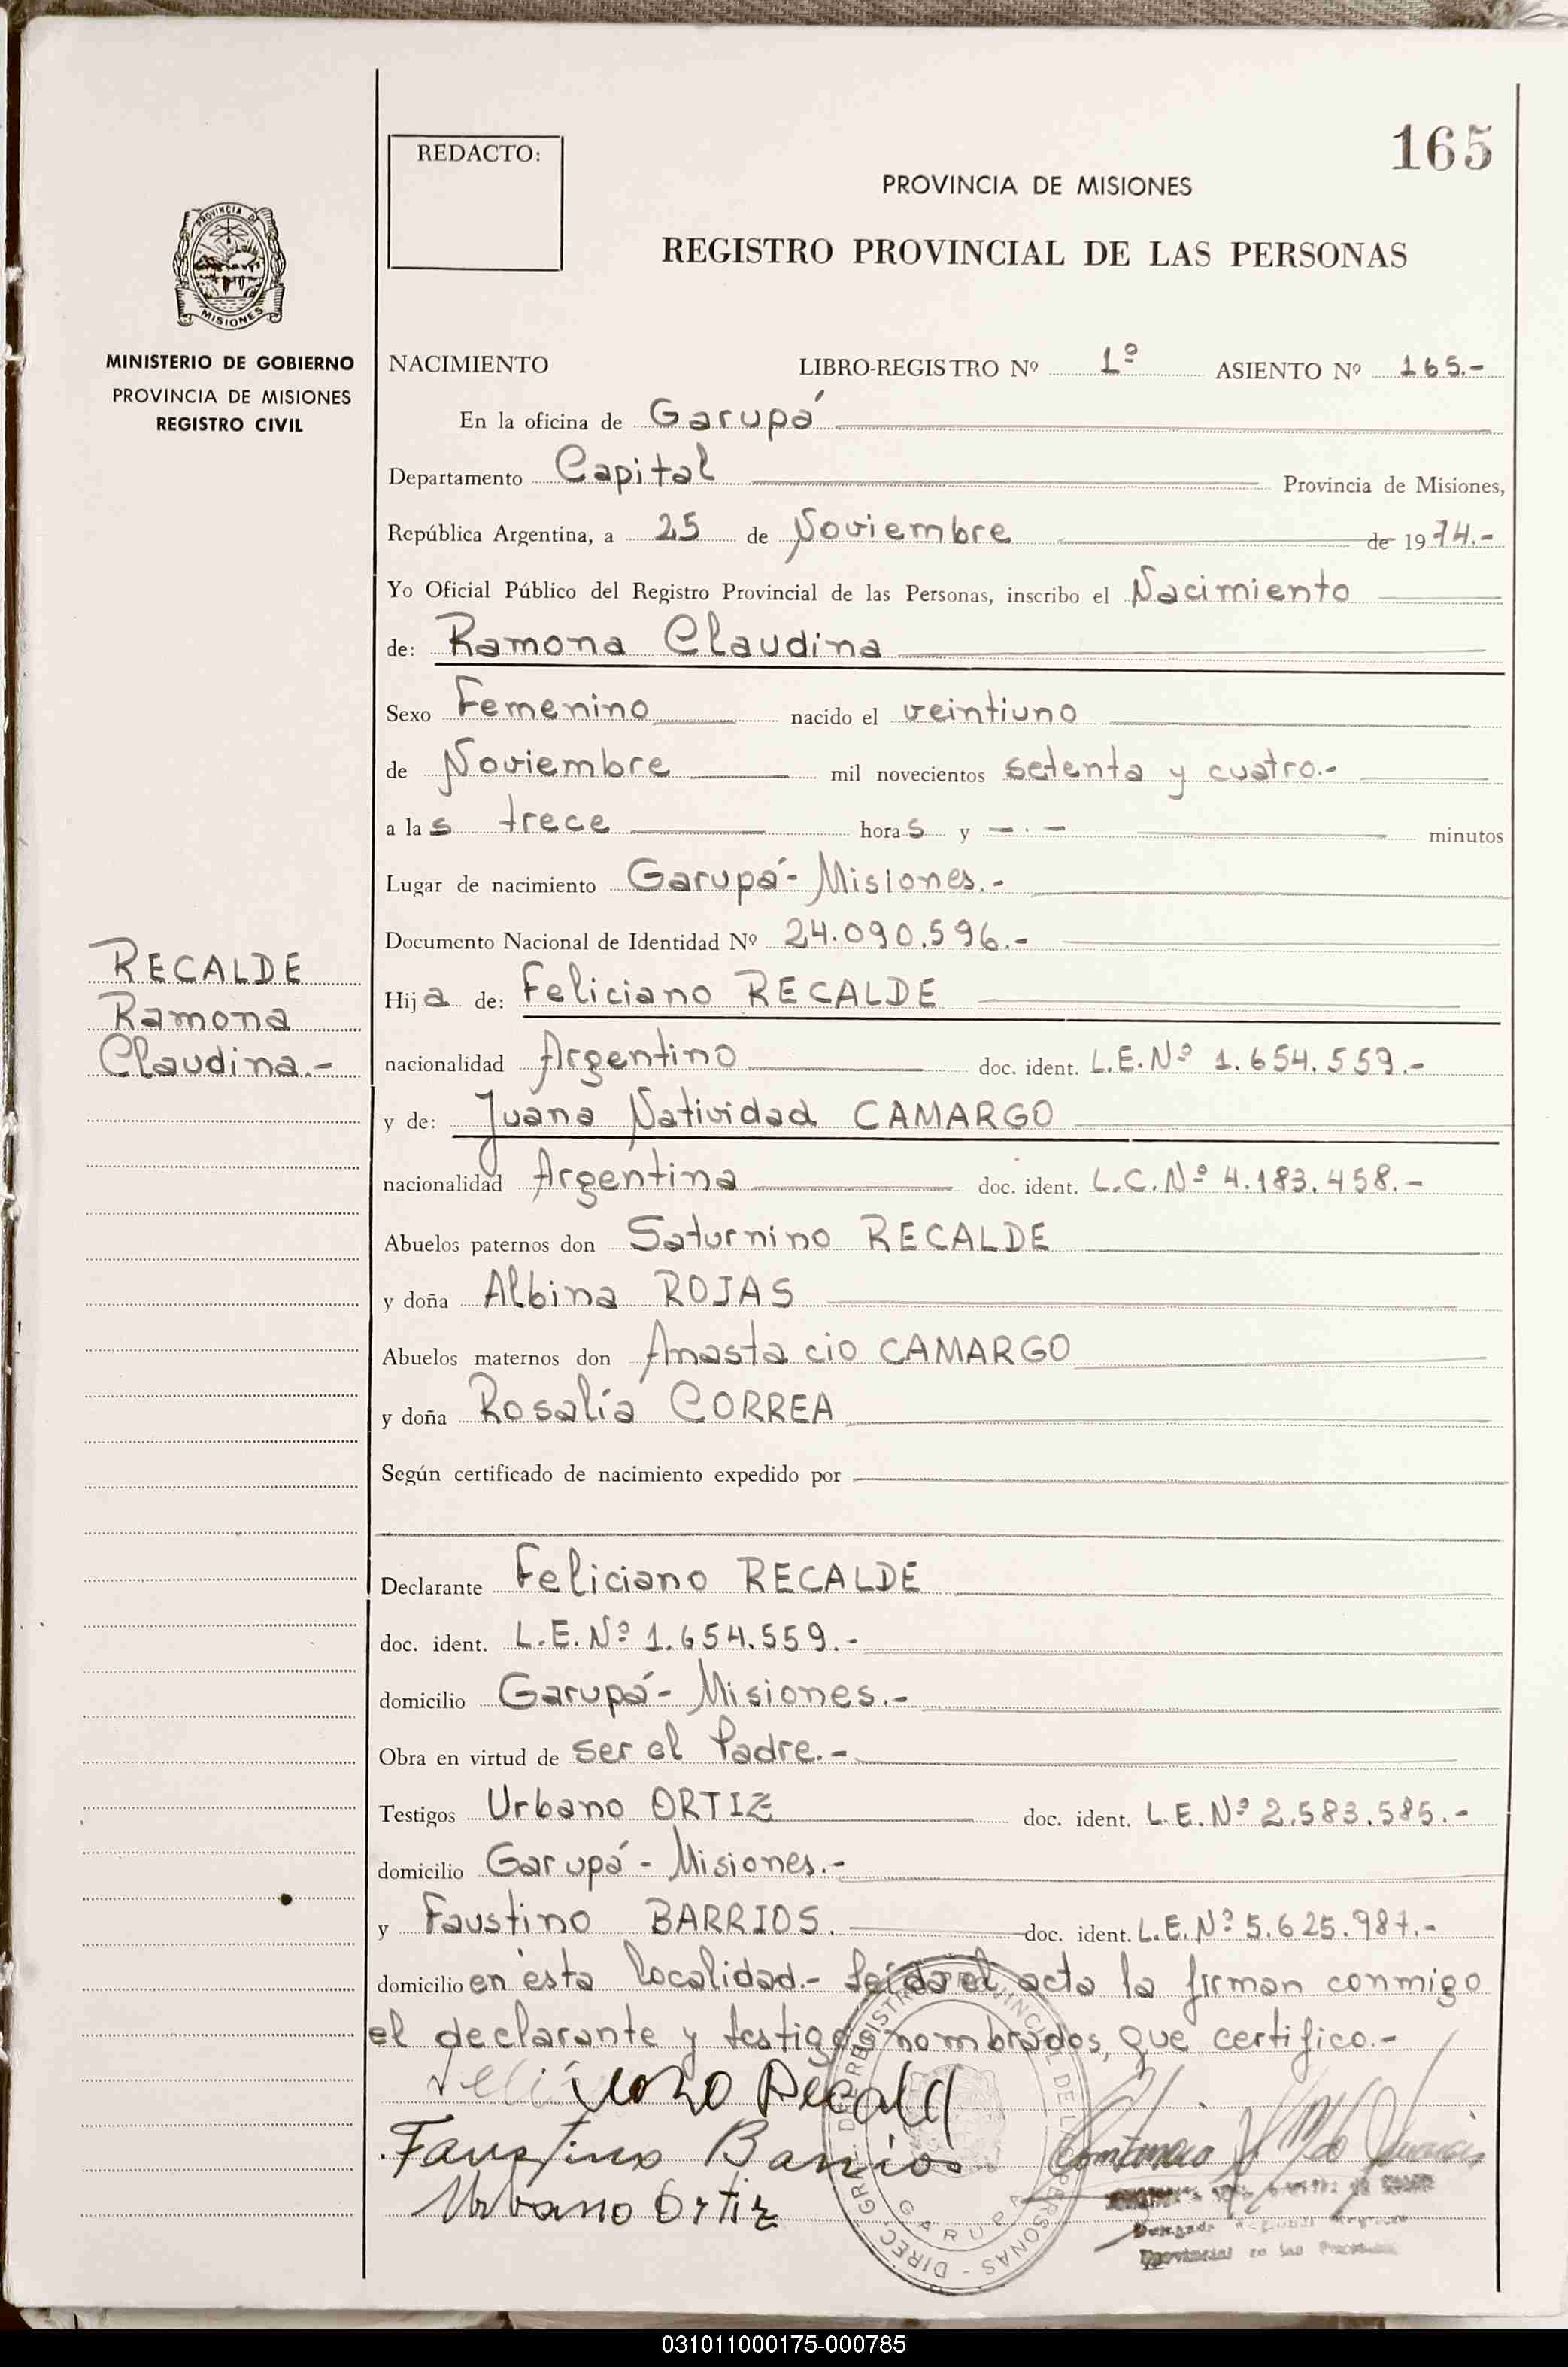 165
REDACTO:
PROVINCIA DE MISIONES
REGISTRO PROVINCIAL DE LAS PERSONAS
PROVINCIA DE
MISIONES
MINISTERIO DE GOBIERNO
PROVINCIA DE MISIONES
REGISTRO CIVIL
NACIMIENTO LIBRO-REGISTRO Nº 1º ASIENTO Nº 165.-
En la oficina de Garupá
Departamento Capital Provincia de Misiones,
República Argentina, a 25 de Noviembre de 1974.-
Yo Oficial Público del Registro Provincial de las Personas, inscribo el Nacimiento
de: Ramona Claudina
Sexo Femenino nacido el veintiuno
de Noviembre mil novecientos setenta y cuatro.-
a las trece horas y -.- minutos
Lugar de nacimiento Garupá- Misiones.-
Documento Nacional de Identidad Nº 24.090.596.-
RECALDE
Ramona
Claudina.-
Hija de: Feliciano RECALDE
nacionalidad Argentino doc. ident. L.E.Nº 1.654.559.-
y de: Juana Natividad CAMARGO
nacionalidad Argentina doc. ident. L.C.Nº 4.183.458.-
Abuelos paternos don Saturnino RECALDE
y doña Albina ROJAS
Abuelos maternos don Anastacio CAMARGO
y doña Rosalía CORREA
Según certificado de nacimiento expedido por
Declarante Feliciano RECALDE
doc. ident. L.E.Nº 1.654.559.-
domicilio Garupá- Misiones.-
Obra en virtud de ser el Padre.-
Testigos Urbano ORTIZ doc. ident. L.E.Nº 2.583.585.-
domicilio Garupá- Misiones.-
y Faustino BARRIOS. doc. ident. L.E.Nº 5.625.987.-
domicilio en ésta localidad.- Leída el acta la firman conmigo
el declarante y testigos nombrados, que certifico.-
Feliciano Recald
Faustino Barrios
Urbano Ortiz
DIREC. GRAL. DEL REGISTRO PROVINCIAL DE LAS PERSONAS -
GARUPA
Provincial de las
031011000175-000785